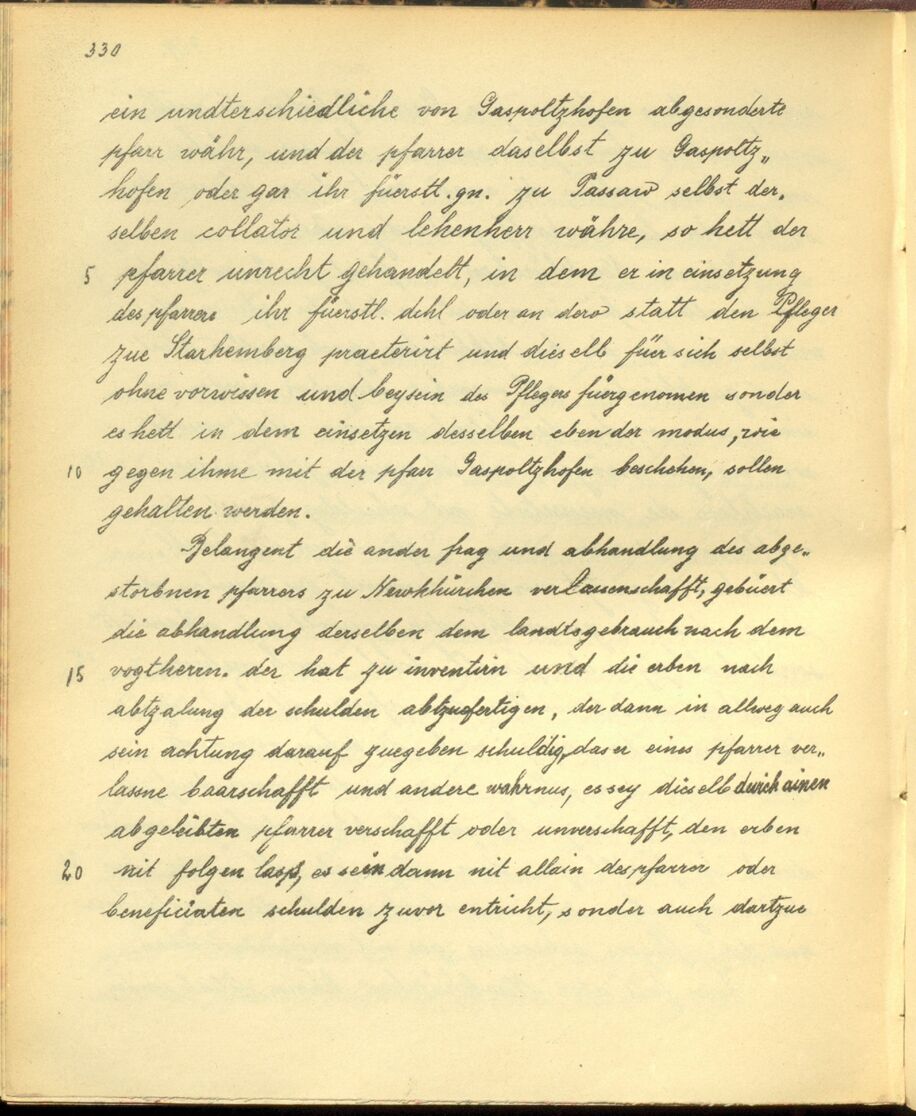 330
ein undterschiedliche von Gaspoltzhofen abgesonderte
pfarr währ, und der pfarrer daselbst zu Gaspoltz„
hofen oder gar ihr füerstl. gn. zu Passaw selbst der„
selben collator und lehenherr währe, so hett der
5 pfarrer unrecht gehandelt, in dem er in einsetzung
des pfarrers ihr füerstl. dchl oder an dero statt den Pfleger
zue Starhemberg praeterirt und dieselb füer sich selbst
ohne vorwissen und beysein des Pflegers füergenomen sonder
es hett in dem einsetzen desselben eben der modus, wie
10 gegen ihme mit der pfarr Gaspoltzhofen beschehen, sollen
gehalten werden.
Belangent die ander frag und abhandlung des abge„
storbnen pfarrers zu Newkhürchen verlassenschafft, gebüert
die abhandlung derselben dem landtsgebrauch nach dem
15 vogtherrn. der hat zu inventirn und die erben nach
abtzalung der schulden abtzuefertigen, der dann in allweg auch
sein achtung darauf zuegeben schuldig, das er eines pfarrer ver„
lassne baarschafft und andere wahrnus, es sey dieselb durch ainen
abgeleibten pfarrer verschafft oder unverschafft, den erben
20 nit folgen lass, es sein dann nit allain des pfarrer oder
beneficiaten schulden zuvor entricht, sonder auch dartzue